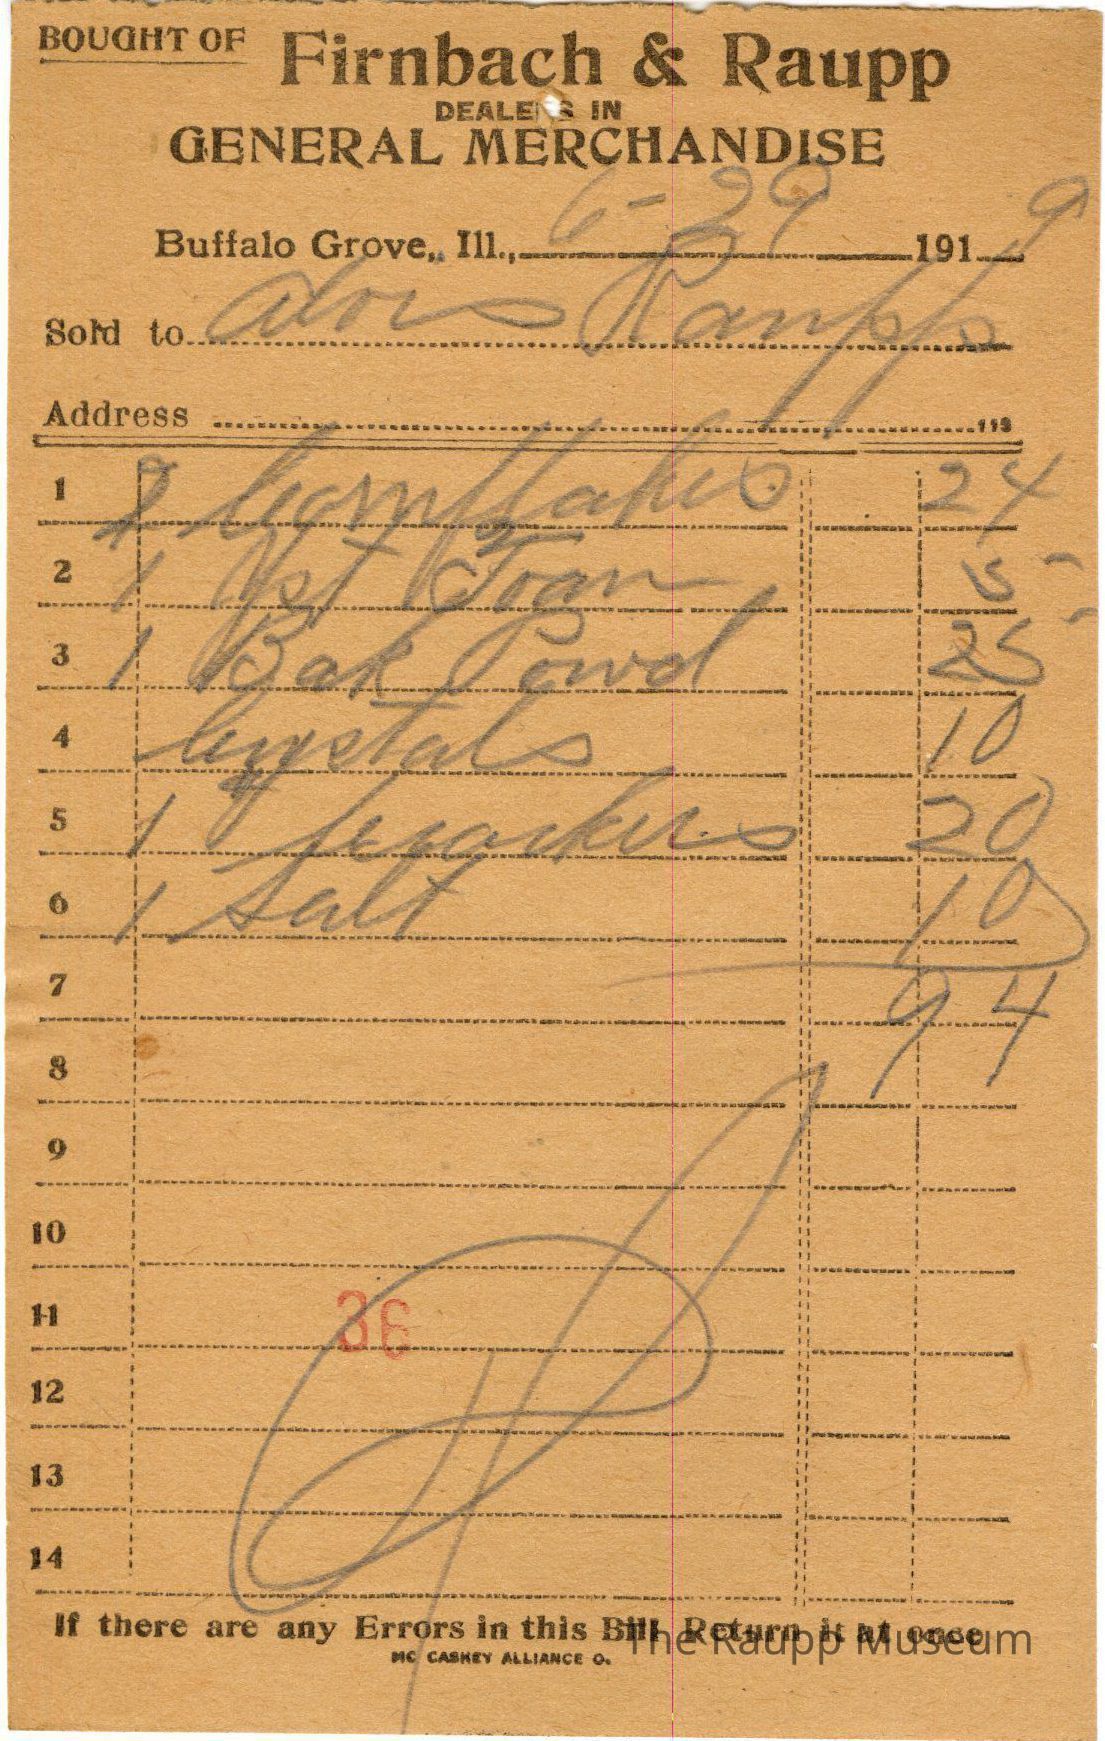 BOUGHT OF Firnbach & Raupp
DEALERS IN
GENERAL MERCHANDISE
Buffalo Grove,, Ill., 6-29 1919
Sold to Alois Raupp
Address 113
1 2 Cornflakes 24
2 1 Yst Foam 5
3 1 Bak Powd 25
4 Crystals 10
5 1 # Crackers 20
6 1 Salt 10
7 94
8
9
10
11 36
12
13
14
If there are any Errors in this Bill Return it at once
MC CASKEY ALLIANCE O.
The Raupp Museum